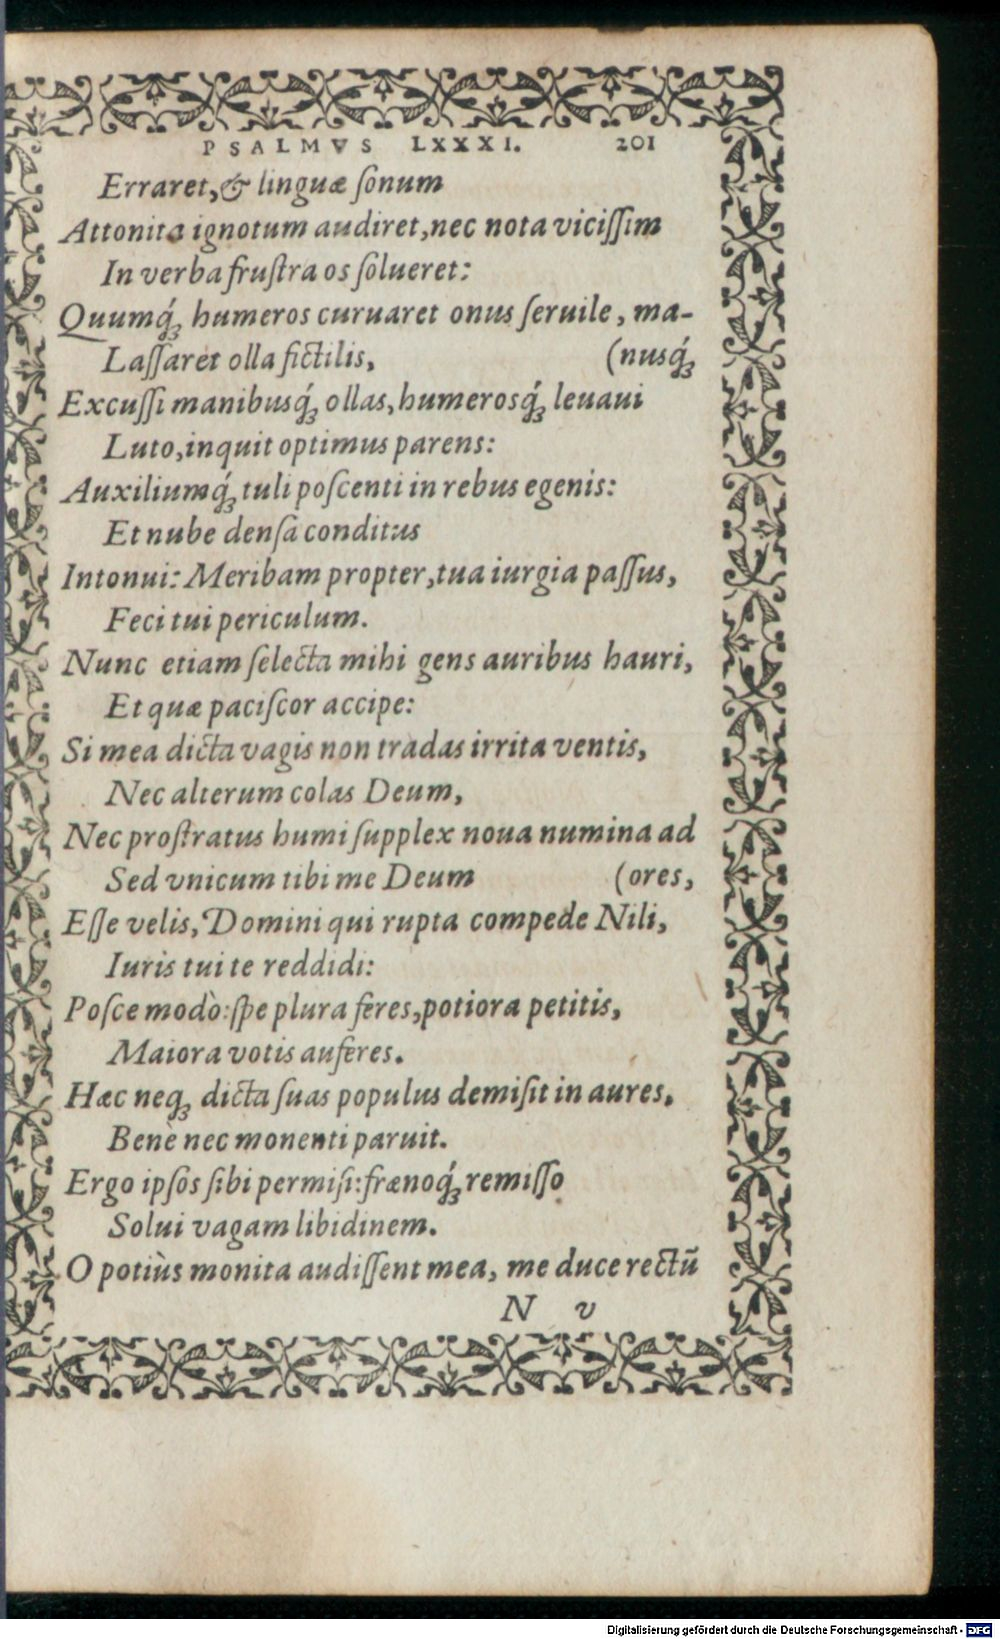 PSALMVS LXXXI. 201
Erraret,& linguæ ſonum
Attonita ignotum audiret,nec nota viciſſim
In verba fruſtra os ſolueret:
Quumq́ꝫ humeros curuaret onus ſeruile, ma-
Laſſaret olla fictilis, (nusq́ꝫ
Excuſſi manibusq́ꝫ ollas, humerosq́ꝫ leuaui
Luto,inquit optimus parens:
Auxiliumq́ꝫ tuli poſcenti in rebus egenis:
Et nube denſa conditus
Intonui: Meribam propter,tua iurgia paſſus,
Feci tui periculum.
Nunc etiam ſelecta mihi gens auribus hauri,
Et quæ paciſcor accipe:
Si mea dicta vagis non tradas irrita ventis,
Nec alterum colas Deum,
Nec proſtratus humi ſupplex noua numina ad
Sed vnicum tibi me Deum (ores,
Eſſe velis, Domini qui rupta compede Nili,
Iuris tui te reddidi:
Poſce modò: ſpe plura feres,potiora petitis,
Maiora votis auferes.
Hæc neqꝫ dicta ſuas populus demiſit in aures,
Benè nec monenti paruit.
Ergo ipſos ſibi permiſi: frænoq́ꝫ remiſſo
Solui vagam libidinem.
O potiùs monita audiſſent mea, me duce rectū
N v
Digitalisierung gefördert durch die Deutsche Forschungsgemeinschaft - DFG